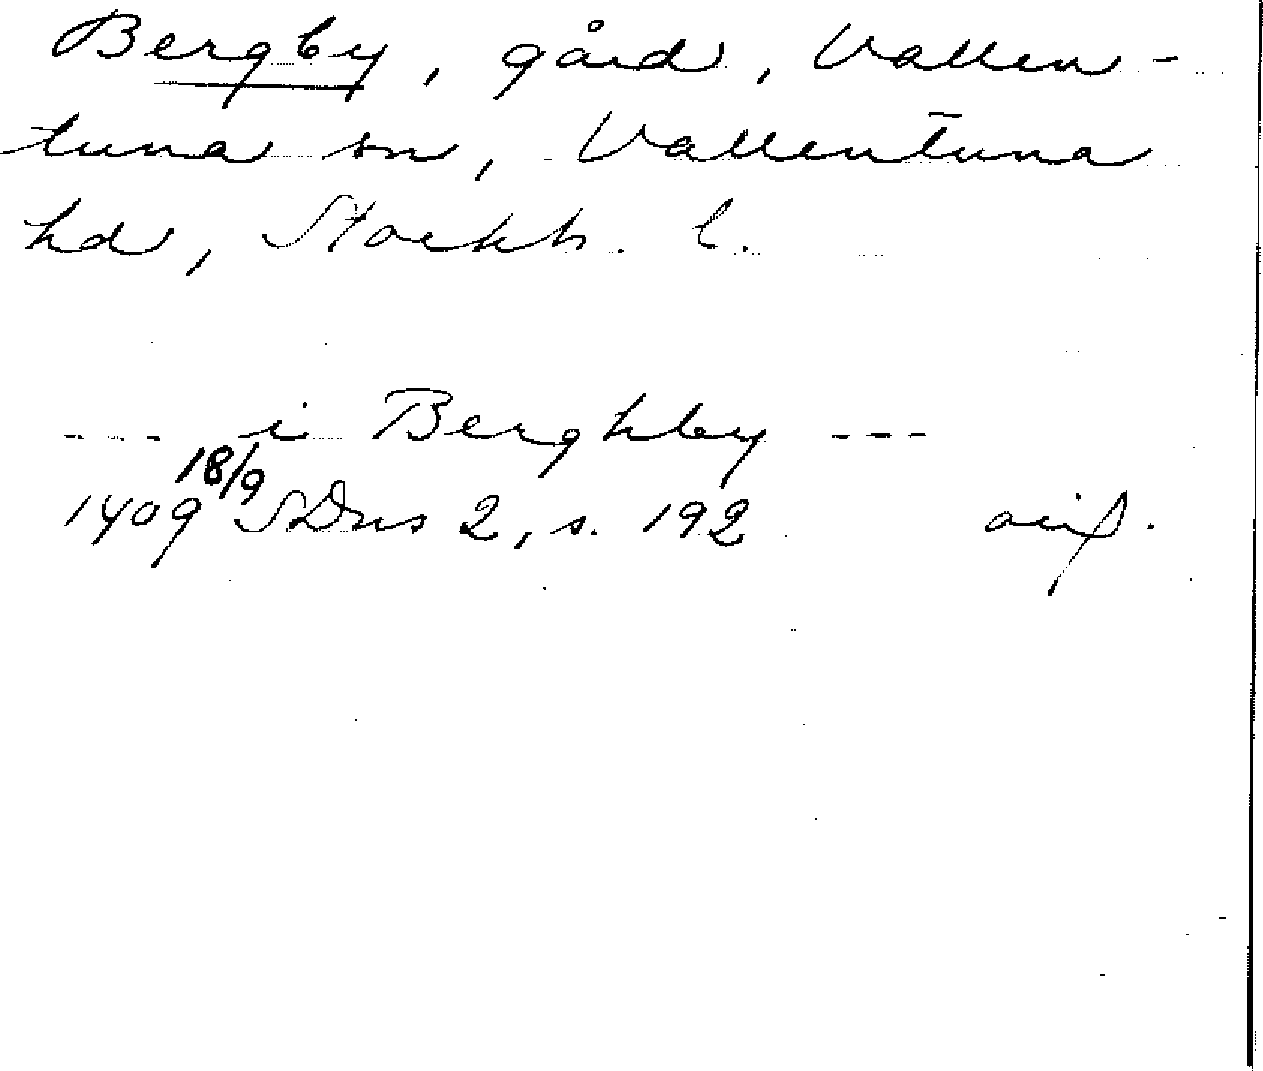 Bergby, gård, Vallen-
tuna sn, Vallentuna
hd, Stockh. l.
--- i Berghby ---
1409 18/9 SDns 2, s. 192 avs.